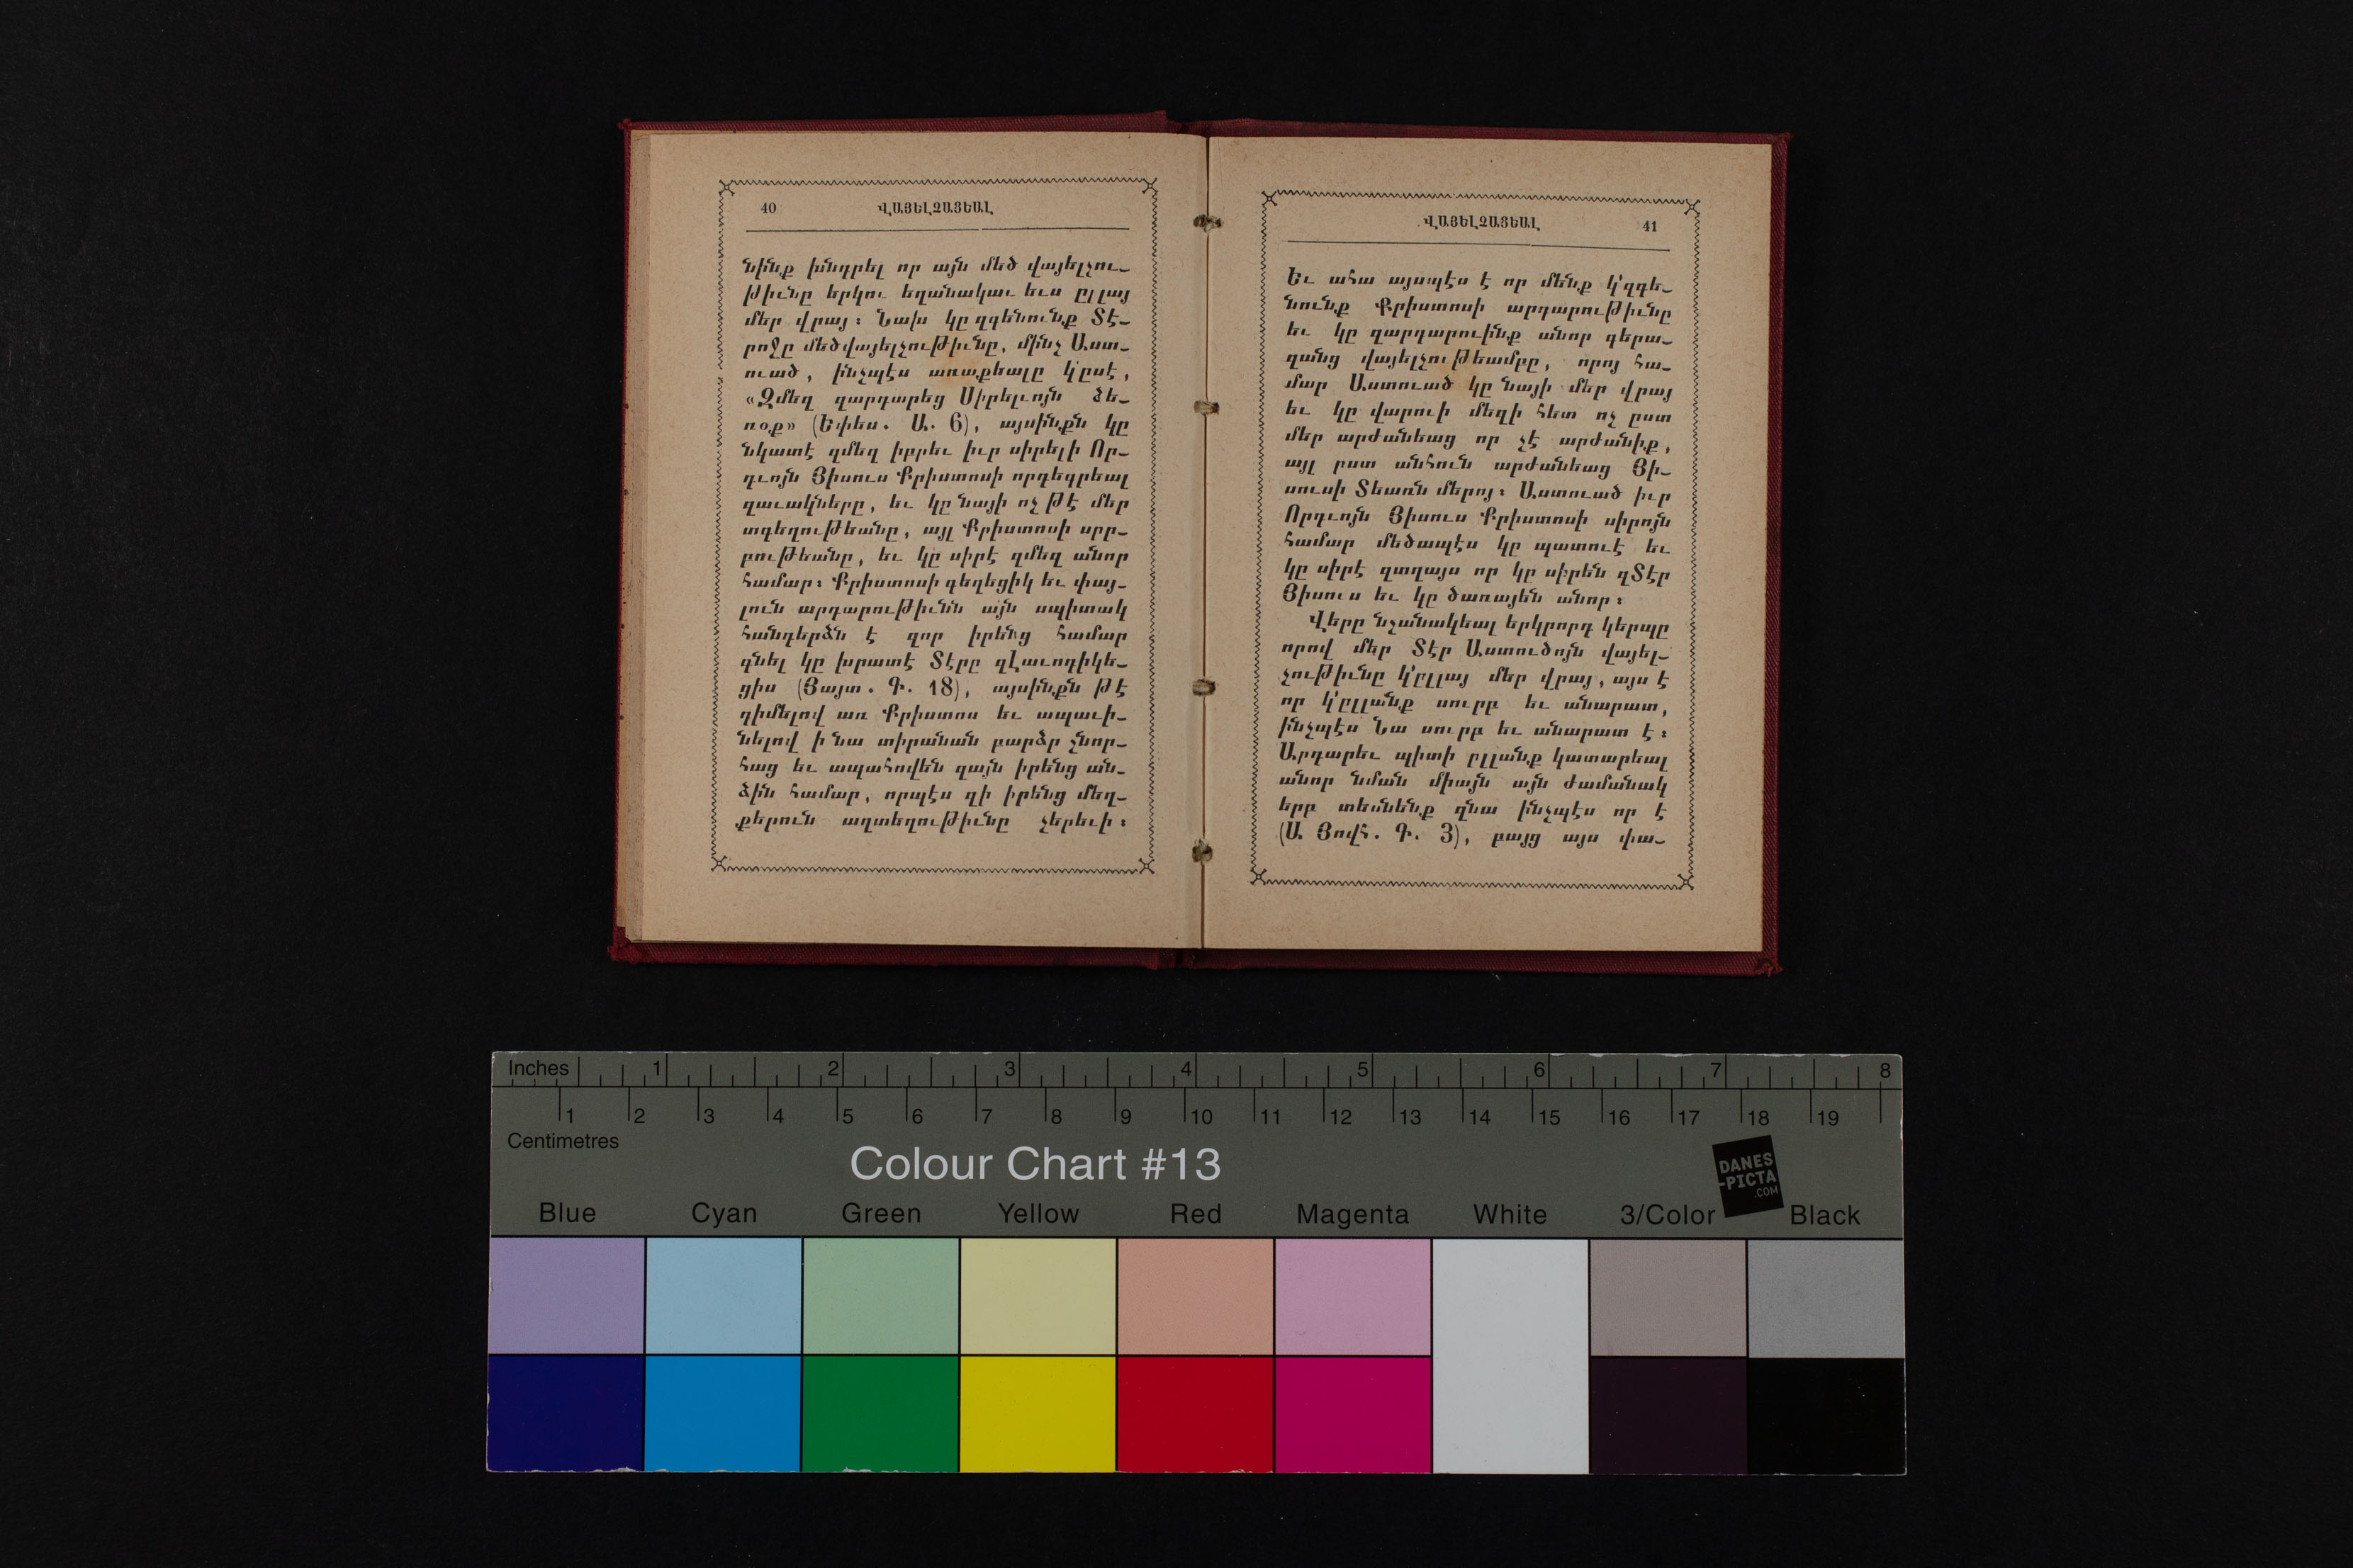 40 ՎԱՅԵԼՉԱՅԵԱԼ
նինք խնդրել որ այն մեծ վայելչու-
թիւնը երկու եղանակաւ եւս ըլլայ
մեր վրայ։ Նախ կը զգենունք Տէ-
րոջը մեծվայելչութիւնը, մինչ Աստ-
ուած, ինչպէս առաքեալը կ'ըսէ,
«Զմեզ զարդարեց Սիրելւոյն ձե-
ռօք» (Եփես. Ա. 6), այսինքն կը
նկատէ զմեզ իբրեւ իւր սիրելի Որ-
դւոյն Յիսուս Քրիստոսի որդեգրեալ
զաւակները, եւ կը նայի ոչ թէ մեր
տգեղութեանը, այլ Քրիստոսի սրբ-
բութեանը, եւ կը սիրէ զմեզ անոր
համար։ Քրիստոսի գեղեցիկ եւ փայ-
լուն արդարութիւնն այն սպիտակ
հանդերձն է զոր իրենց համար
գնել կը խրատէ Տէրը զԼաւոդիկե-
ցիս (Յայտ. Գ. 18), այսինքն թէ
դիմելով առ Քրիստոս եւ ապաւի-
նելով ի նա տիրանան բարձր շնոր-
հաց եւ ապահովեն զայն իրենց ան-
ձին համար, որպէս զի իրենց մեղ-
քերուն աղտեղութիւնը չերեւի։
ՎԱՅԵԼՉԱՅԵԱԼ 41
Եւ ահա այսպէս է որ մենք կ'զգե-
նունք Քրիստոսի արդարութիւնը
եւ կը զարդարուինք անոր գերա-
զանց վայելչութեամբը, որոյ հա-
մար Աստուած կը նայի մեր վրայ
եւ կը վարուի մեզի հետ ոչ ըստ
մեր արժանեաց որ չէ արժանիք,
այլ ըստ անհուն արժանեաց Յի-
սուսի Տեառն մերոյ։ Աստուած իւր
Որդւոյն Յիսուս Քրիստոսի սիրոյն
համար մեծապէս կը պատուէ եւ
կը սիրէ զտղայս որ կը սիրեն զՏէր
Յիսուս եւ կը ծառայեն անոր։
Վերը նշանակեալ երկրորդ կերպը
որով մեր Տէր Աստուծոյն վայել-
չութիւնը կ'ըլլայ մեր վրայ, այս է
որ կ'ըլլանք սուրբ եւ անարատ,
ինչպէս Նա սուրբ եւ անարատ է։
Արդարեւ պիտի ըլլանք կատարեալ
անոր նման միայն այն ժամանակ
երբ տեսնենք զնա ինչպէս որ է
(Ա. Յովհ. Գ. 3), բայց այս փա-
Inches 1 2 3 4 5 6 7 8
1 2 3 4 5 6 7 8 9 10 11 12 13 14 15 16 17 18 19
Centimetres
Colour Chart #13
DANES
-PICTA
.COM
Blue Cyan Green Yellow Red Magenta White 3/Color Black